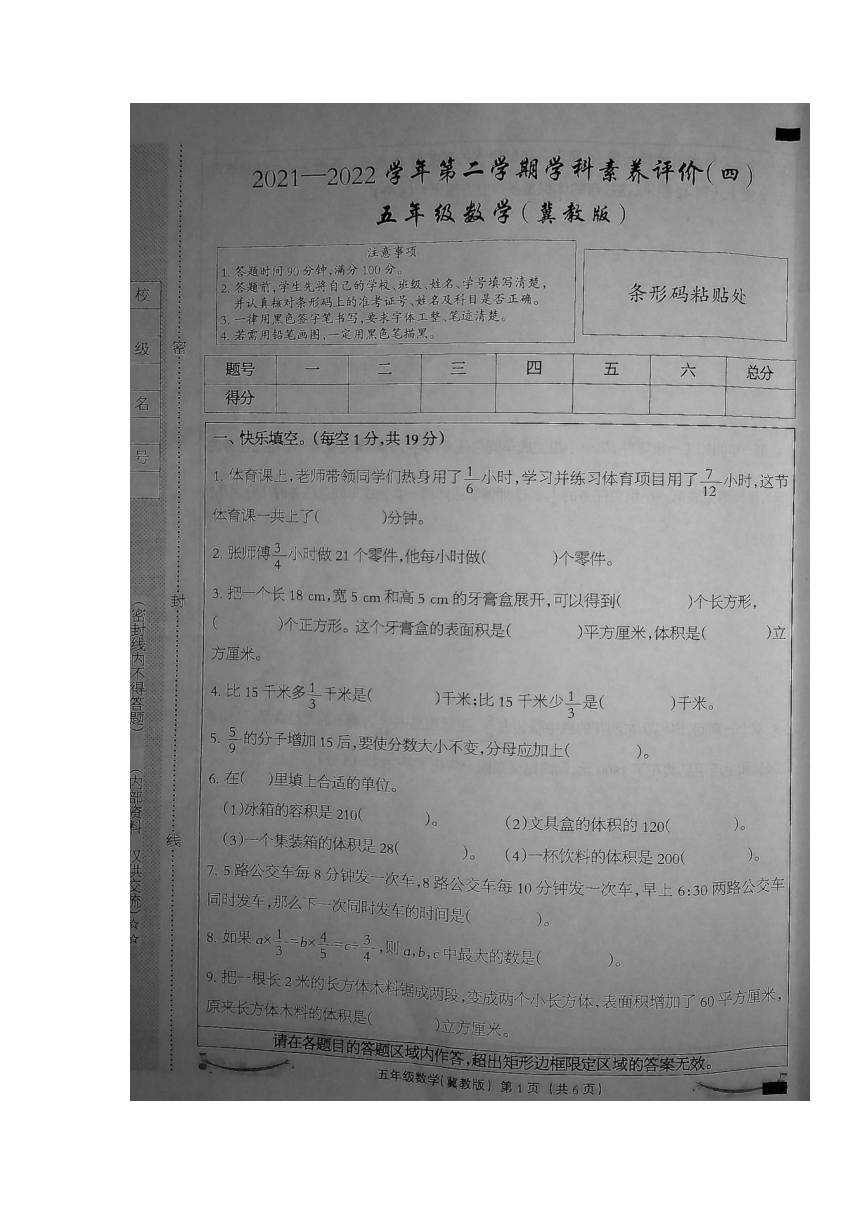 2021—2022学年第二学期学科素养评价(四)
五年级数学(冀教版)
注意事项
1. 答题时间90分钟,满分100分。
2. 答题前,学生先将自己的学校、班级、姓名、学号填写清楚,
并认真核对条形码上的准考证号、姓名及科目是否正确。
3. 一律用黑色签字笔书写,要求字体工整、笔迹清楚。
4. 若需用铅笔画图,一定用黑色笔描黑。
条形码粘贴处
校
级
名
号
密
封
线
(密封线内不得答题)
(内部资料 仅供交流)☆☆
题号 一 二 三 四 五 六 总分
得分
一、快乐填空。(每空1分,共19分)
1. 体育课上,老师带领同学们热身用了1/6小时,学习并练习体育项目用了7/12小时,这节
体育课一共上了( )分钟。
2. 张师傅3/4小时做21个零件,他每小时做( )个零件。
3. 把一个长18 cm,宽5 cm和高5 cm的牙膏盒展开,可以得到( )个长方形,
( )个正方形。这个牙膏盒的表面积是( )平方厘米,体积是( )立
方厘米。
4. 比15千米多1/3千米是( )千米;比15千米少1/3是( )千米。
5. 5/9的分子增加15后,要使分数大小不变,分母应加上( )。
6. 在( )里填上合适的单位。
(1)冰箱的容积是210( )。 (2)文具盒的体积的120( )。
(3)一个集装箱的体积是28( )。 (4)一杯饮料的体积是200( )。
7. 5路公交车每8分钟发一次车,8路公交车每10分钟发一次车,早上6:30两路公交车
同时发车,那么下一次同时发车的时间是( )。
8. 如果a×1/3=b×4/5=c=3/4,则a,b,c中最大的数是( )。
9. 把一根长2米的长方体木料锯成两段,变成两个小长方体,表面积增加了60平方厘米,
原来长方体木料的体积是( )立方厘米。
请在各题目的答题区域内作答,超出矩形边框限定区域的答案无效。
五年级数学(冀教版) 第1页 (共6页)